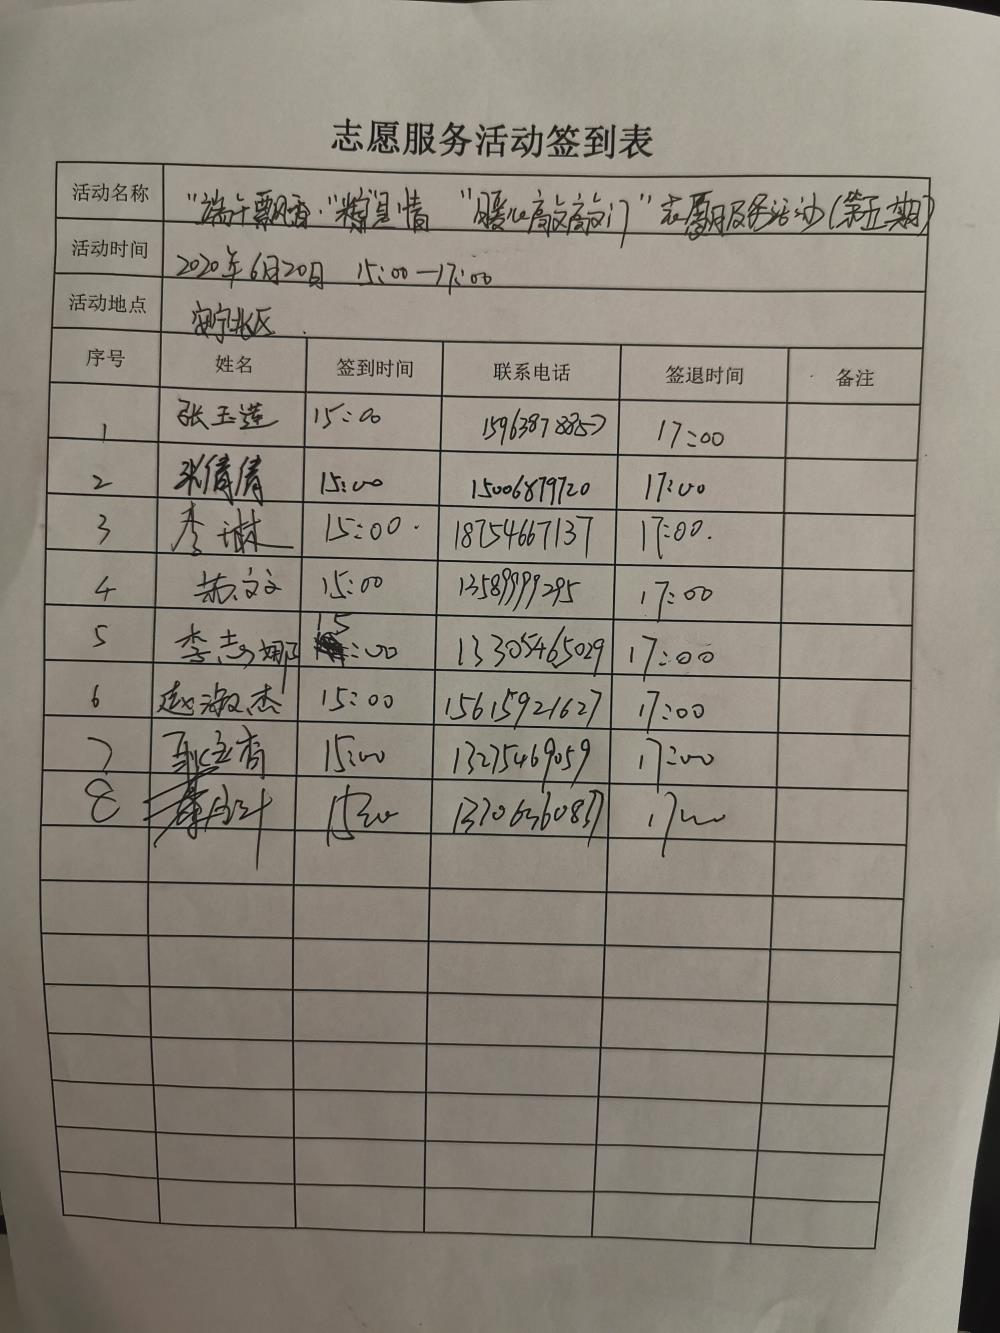 志愿服务活动签到表
活动名称 "端午飘香·"粽"是情 "暖心敲敲门"志愿服务活动(第五期)
活动时间 2020年6月20日 15:00—17:00
活动地点 安宁北区
序号 姓名 签到时间 联系电话 签退时间 备注
1 张玉莲 15:00 17:00
2 张倩倩 15:00 15006879720 17:00
3 李琳 15:00 18754667137 17:00
4 文文 15:00 13589999295 17:00
5 李志娜 15:00 13305465029 17:00
6 赵淑杰 15:00 15615921627 17:00
7 香 15:00 13275469059 17:00
8 15:00 17:00